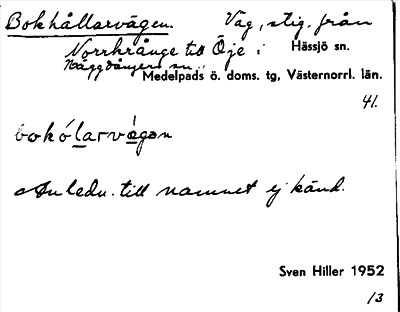 Bokhållarvägen. Väg, stig, från
Norrkrånge till Öje i Hässjö sn.
Häggdångers sn.
Medelpads ö. doms. tg, Västernorrl. län.
41.
bokó̱larvá̱gən
Anledn. till namnet ej känd.
Sven Hiller 1952
13